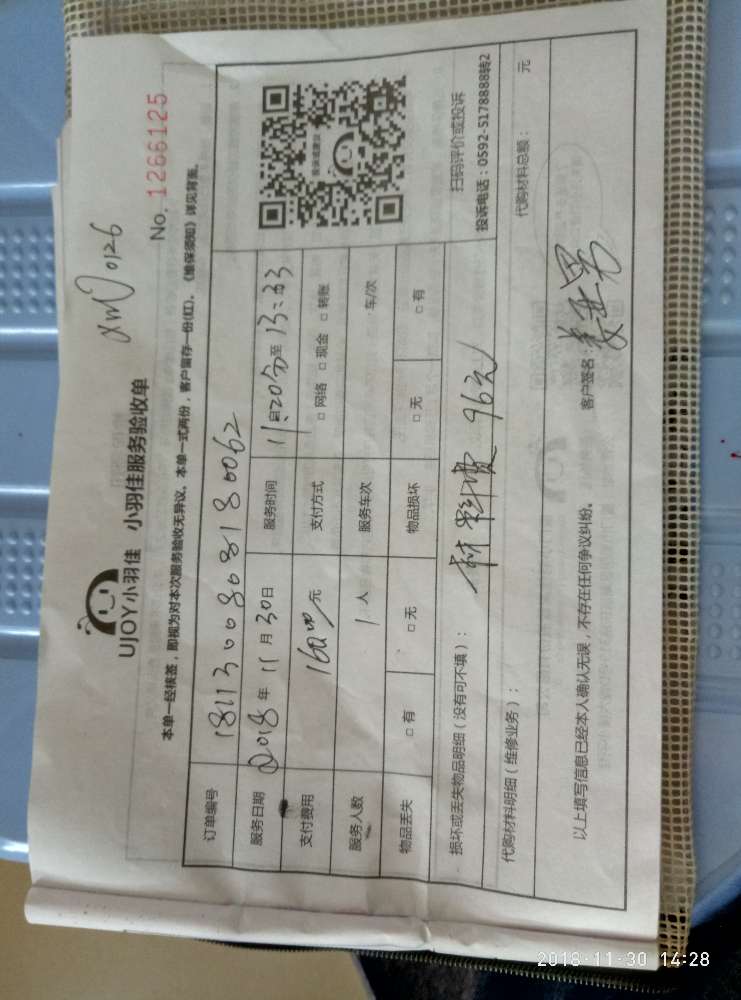 xm0126
UJOY小羽佳 小羽佳服务验收单
No. 1266125
本单一经核签，即视为对本次服务验收无异议。本单一式两份，客户留存一份(红)。《维保须知》详见背面。
订单编号 1811300808180062
服务日期 2018年 11月 30日 服务时间 11点20分至 13:33
支付费用 160.00元 支付方式 □ 网络 □ 现金 □ 转账
服务人数 1人 服务车次 车/次
物品丢失 □ 有 □ 无 物品损坏 □ 无 □ 有
投诉或建议
扫码评价或投诉
投诉电话：0592-5178888转2
损坏或丢失物品明细（没有可不填）：
材料费 96元
代购材料明细（维修业务）：
代购材料总额： 元
以上填写信息已经本人确认无误，不存在任何争议纠纷。 客户签名：
2018-11-30 14:28